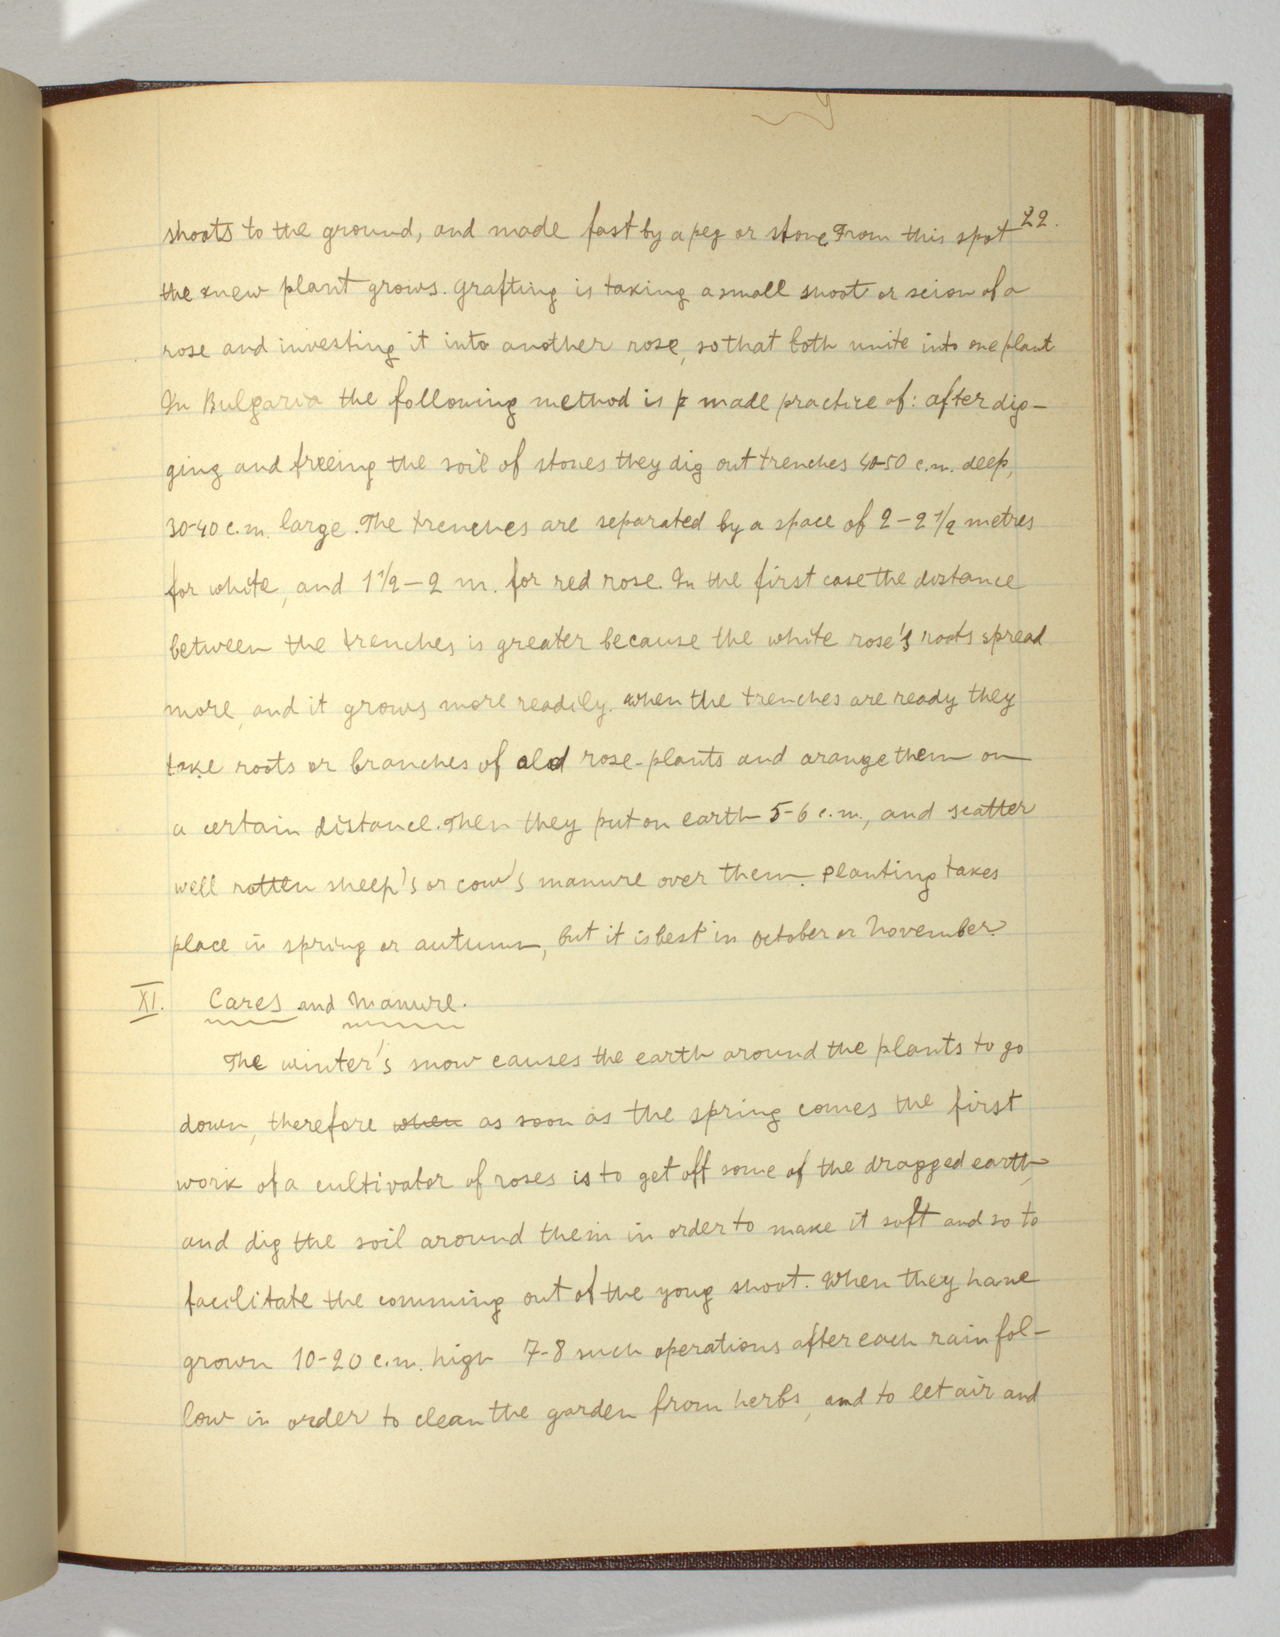 22.
shoots to the ground, and made fast by a peg or stone. From this spot
the new plant grows. Grafting is taking a small shoot or scion of a
rose and investing it into another rose, so that both unite into one plant
In Bulgaria the following method is made practice of: after dig-
ging and freeing the soil of stones they dig out trenches 40-50 c.m. deep,
30-40 c.m. large. The trenches are separated by a space of 2-2 1/2 metres
for white, and 1 1/2-2 m. for red rose. In the first case the distance
between the trenches is greater because the white rose's roots spread
more, and it grows more readily. When the trenches are ready they
take roots or branches of old rose-plants and arange them on
a certain distance. Then they put on earth 5-6 c.m., and scatter
well rotten sheep's or cow's manure over them. Planting takes
place in spring or autumn, but it is best in October or November.
XI. Cares and Manure.
The winter's snow causes the earth around the plants to go
down, therefore when as soon as the spring comes the first
work of a cultivator of roses is to get off some of the dragged earth,
and dig the soil around them in order to make it soft and so to
facilitate the comming out of the yong shoot. When they have
grown 10-20 c.m. high 7-8 such operations after each rain fol-
low in order to clean the garden from herbs, and to let air and